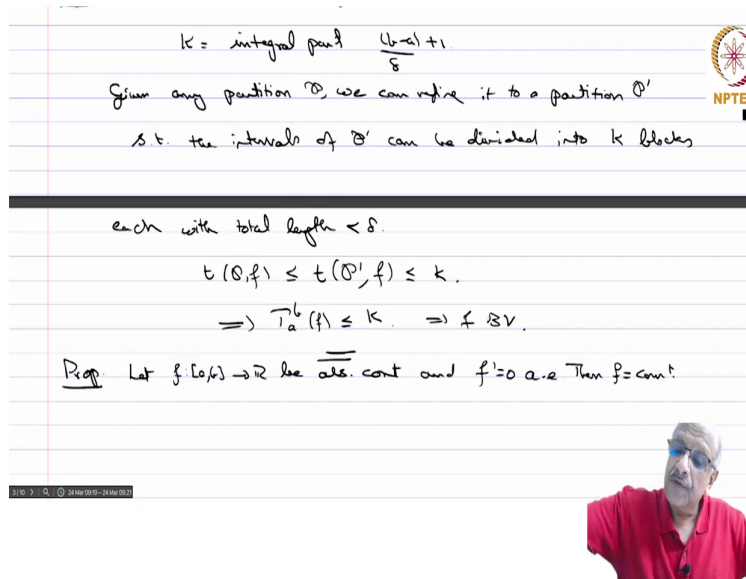 K = integral part (b-a)/δ + 1.
Given any partition P, we can refine it to a partition P'
s.t. the intervals of P' can be divided into K blocks
each with total length < δ.
t(P,f) ≤ t(P',f) ≤ K.
⇒ T_a^b(f) ≤ K. ⇒ f BV.
Prop. Let f:[a,b]→ℝ be abs. cont and f'=0 a.e Then f=const.
NPTE
3/10 24 Mar 09:19 - 24 Mar 09:21